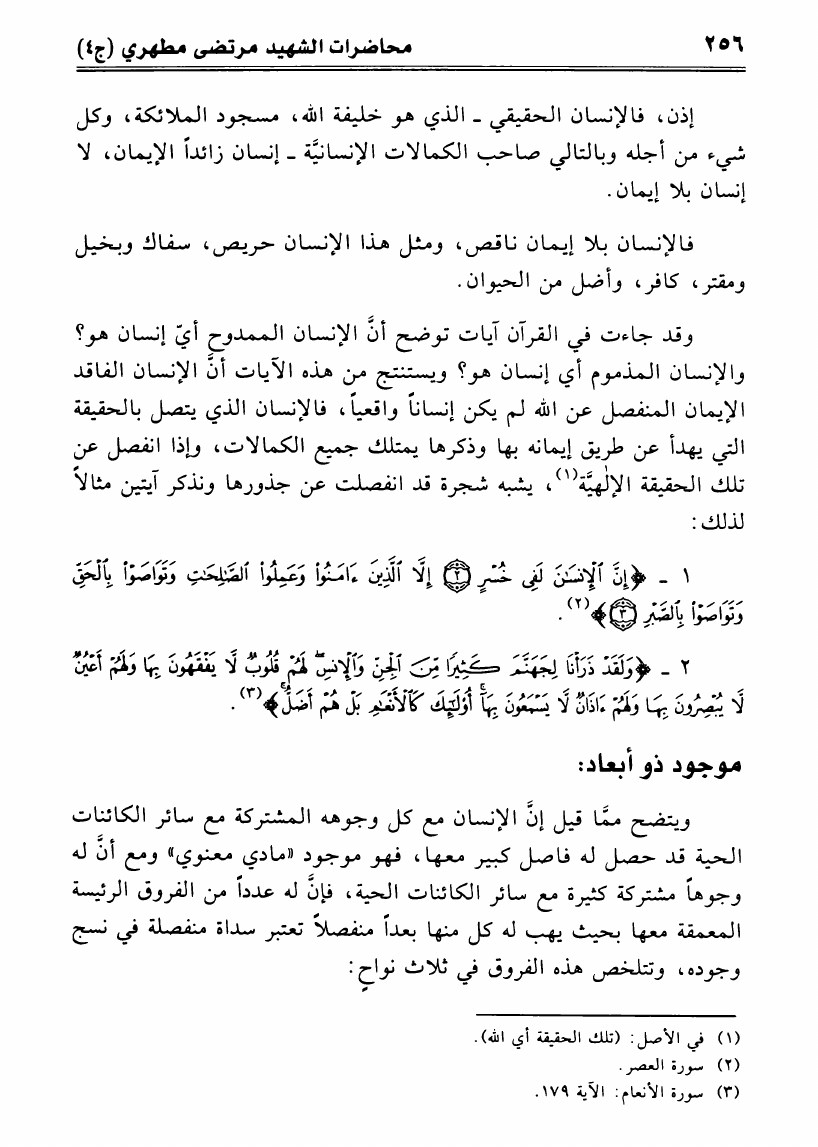 ٢٥٦
محاضرات الشهيد مرتضى مطهري (ج٤)
إذن، فالإنسان الحقيقي ـ الذي هو خليفة الله، مسجود الملائكة، وكل
شيء من أجله وبالتالي صاحب الكمالات الإنسانيَّة ـ إنسان زائداً الإيمان، لا
إنسان بلا إيمان.
فالإنسان بلا إيمان ناقص، ومثل هذا الإنسان حريص، سفاك وبخيل
ومقتر، كافر، وأضل من الحيوان.
وقد جاءت في القرآن آيات توضح أنَّ الإنسان الممدوح أيّ إنسان هو؟
والإنسان المذموم أي إنسان هو؟ ويستنتج من هذه الآيات أنَّ الإنسان الفاقد
الإيمان المنفصل عن الله لم يكن إنساناً واقعياً، فالإنسان الذي يتصل بالحقيقة
التي يهدأ عن طريق إيمانه بها وذكرها يمتلك جميع الكمالات، وإذا انفصل عن
تلك الحقيقة الإلٰهيَّة(١)، يشبه شجرة قد انفصلت عن جذورها ونذكر آيتين مثالاً
لذلك:
١ ـ ﴿إِنَّ ٱلْإِنسَٰنَ لَفِى خُسْرٍ ۝٢ إِلَّا ٱلَّذِينَ ءَامَنُوا۟ وَعَمِلُوا۟ ٱلصَّٰلِحَٰتِ وَتَوَاصَوْا۟ بِٱلْحَقِّ
وَتَوَاصَوْا۟ بِٱلصَّبْرِ ۝٣﴾(٢).
٢ ـ ﴿وَلَقَدْ ذَرَأْنَا لِجَهَنَّمَ كَثِيرًا مِّنَ ٱلْجِنِّ وَٱلْإِنسِ ۖ لَهُمْ قُلُوبٌ لَّا يَفْقَهُونَ بِهَا وَلَهُمْ أَعْيُنٌ
لَّا يُبْصِرُونَ بِهَا وَلَهُمْ ءَاذَانٌ لَّا يَسْمَعُونَ بِهَآ ۚ أُو۟لَٰٓئِكَ كَٱلْأَنْعَٰمِ بَلْ هُمْ أَضَلُّ ۚ﴾(٣).
موجود ذو أبعاد:
ويتضح ممَّا قيل إنَّ الإنسان مع كل وجوهه المشتركة مع سائر الكائنات
الحية قد حصل له فاصل كبير معها، فهو موجود «مادي معنوي» ومع أنَّ له
وجوهاً مشتركة كثيرة مع سائر الكائنات الحية، فإنَّ له عدداً من الفروق الرئيسة
المعمقة معها بحيث يهب له كل منها بعداً منفصلاً تعتبر سداة منفصلة في نسج
وجوده، وتتلخص هذه الفروق في ثلاث نواحٍ:
(١) في الأصل: (تلك الحقيقة أي الله).
(٢) سورة العصر.
(٣) سورة الأنعام: الآية ١٧٩.